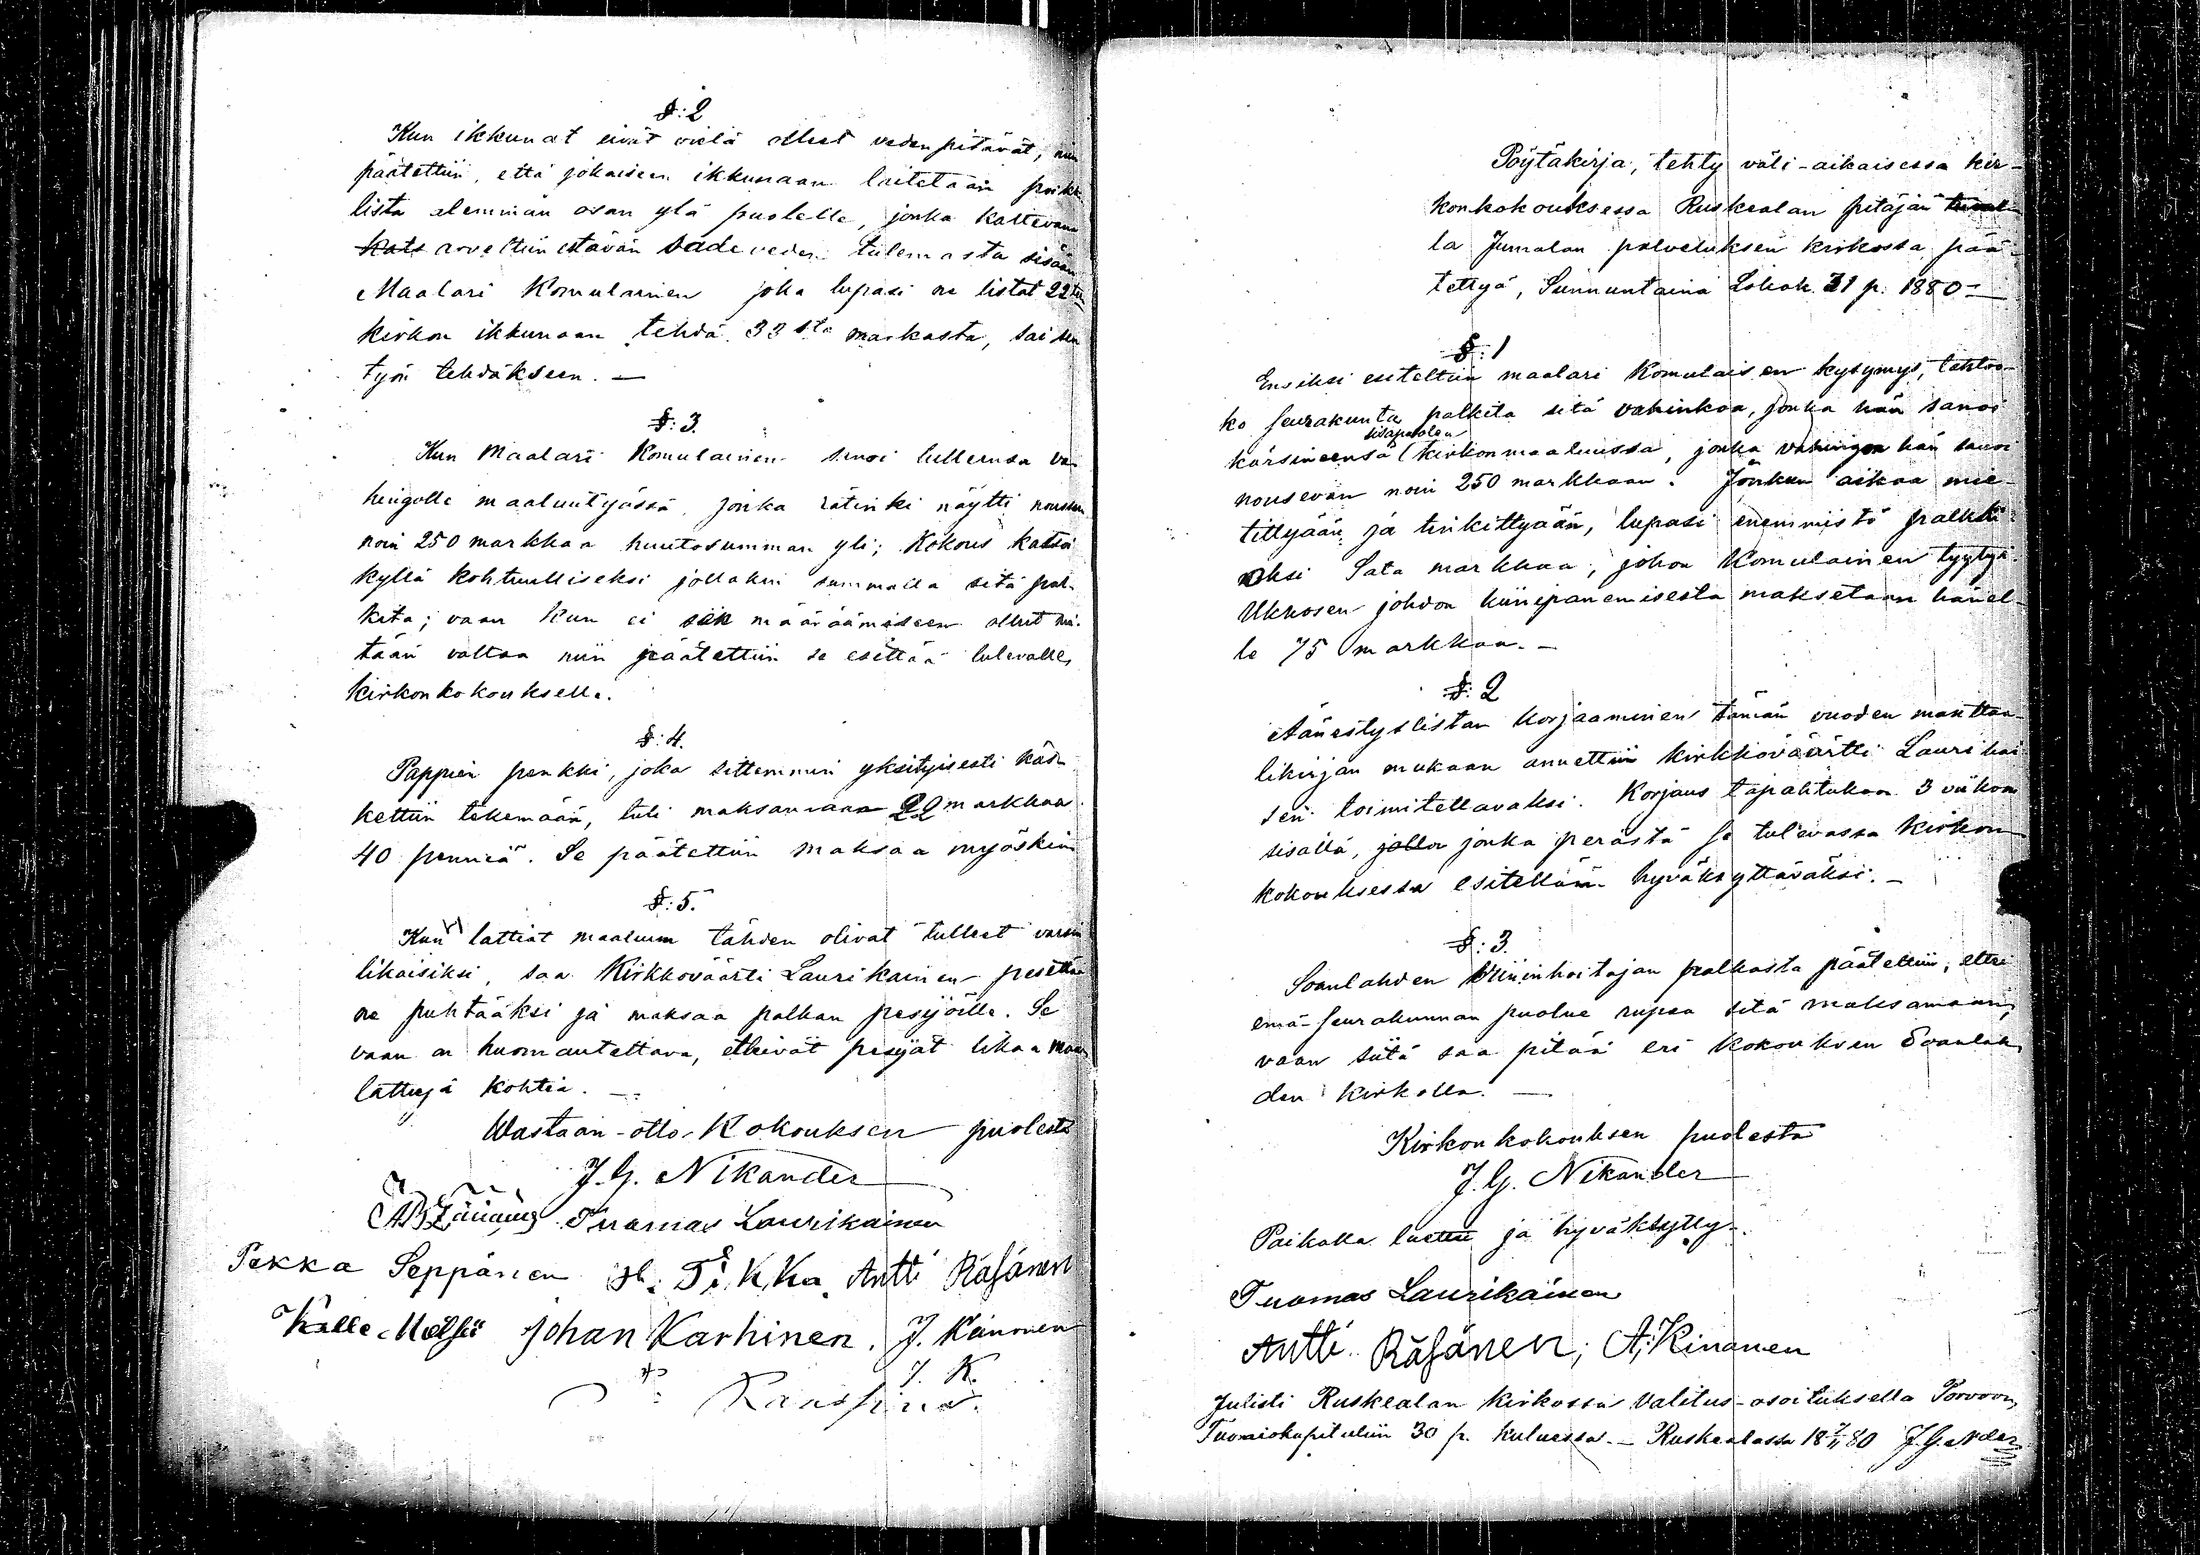 §: 2
Kun ikkunat eivät vielä olleet vedenpitävät, niin
päätettiin, että jokaiseen ikkunaan laitetaan poikki
lista alemman osan ylä puolelle, jonka kaltevana
arveltiin estävän sade veden tulemasta sisään
Maalari Komulainen joka lupasi ne listat 22
kirkon ikkunaan tehdä 33sta markasta, sai sen
työn tehdäkseen. —
§: 3.
Kun Maalari Komulainen sanoi tulleensa va-
hingolle maalutyössä, jonka rätinki näytti nousevan
noin 250 markkaa huutosumman yli; Kokous katsoi
kyllä kohtuulliseksi jollakin summalla sitä pal-
kita; vaan kun ei sen määräämiseen ollut mi-
tään valtaa niin päätettiin se esittää tulevalle
kirkonkokoukselle.
§: 4.
Pappien penkki, joka sittemmin yksityisesti käs-
kettiin tekemään, tuli maksamaan 22 markkaa
40 penniä. Se päätettiin maksaa myöskin
§: 5.
Kun lattiat maaluun tähden olivat tulleet varsin
likaisiksi, saa Kirkkoväärti Laurikainen pesettää
ne puhtääksi ja maksaa palkan pesijöille. Se
vaan on huomautettava, etteivät pesijät likaa maa-
lattuja kohtia. —
Wastaan-otto-Kokouksen puolesta
J. G. Nikander
Tuomas Laurikainen
Pekka Seppänen H. Tikka. Antti Räsänen
Kalle Johan Karhinen. J. Keinonen
J. K.
Pöytäkirja, tehty väli-aikaisessa kir-
konkokouksessa Ruskealan pitäjän
la Jumalan palveluksen kirkossa pää-
tettyä, Sunnuntaina Lokak. 31 p. 1880 —
§: 1
Ensiksi esiteltiin maalari Komulaisen kysymys, tahtoo-
ko seurakunta palkita sitä vahinkoa, jonka hän sanoi
sisäpuolen
kärsineensä kirkonmaaluussa, jonka vahingon hän sanoi
nousevan noin 250 markkaan. Jonkun aikaa mie-
tittyään ja tinkittyään, lupasi enemmistö palkki-
oksi Sata markkaa, johon Komulainen tyytyi.
Ukkosen johdon kiinipanemisesta maksetaan hänel-
le 75 markkaa. —
§: 2
Äänestyslistan korjaaminen tämän vuoden manttaa-
likirjan mukaan annettiin kirkkoväärtti Laurikai-
sen toimitettavaksi. Korjaus tapahtukoon 3 viikon
sisällä, jolla jonka perästä se tulevassa kirkon-
kokouksessa esitellään hyväksyttäväksi. —
§: 3.
Soanlahden kiininhoitajan palkasta päätettiin, ettei
emä-seurakunnan puolue rupea sitä maksamaan,
vaan siitä saa pitää eri kokouksen Soanlah-
den kirkolla. —
Kirkonkokouksen puolesta
J. G. Nikander
Paikalla luettu ja hyväksytty.
Tuomas Laurikainen
Antti Räsänen; A. Kinonen
Julisti Ruskealan kirkossa valitus-osoituksella Porvoon
Tuomiokapituliin 30 p. kuluessa. — Ruskealassa 18 7/11 80 J. G. Nder